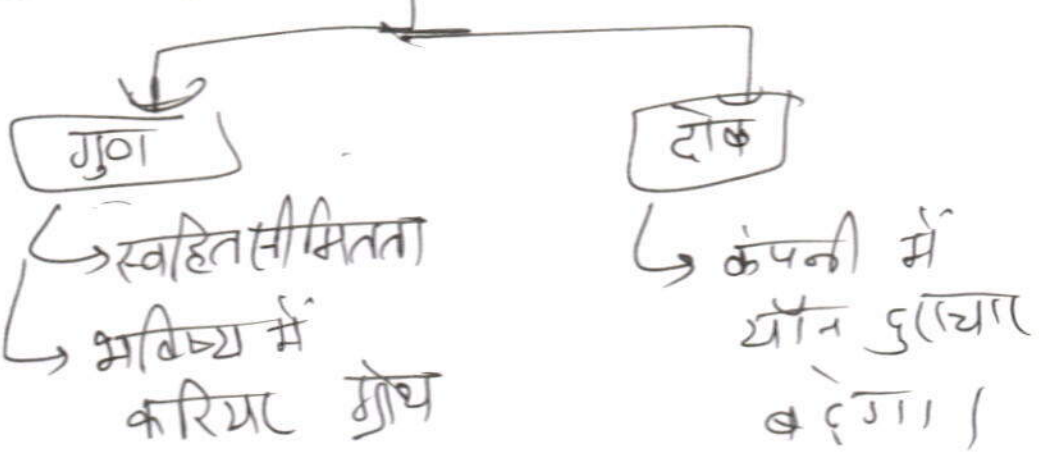 गुण
दोष
स्वहित सीमितता
भविष्य में
करियर ग्रोथ
कंपनी में
यौन दुराचार
बढ़ेगा।